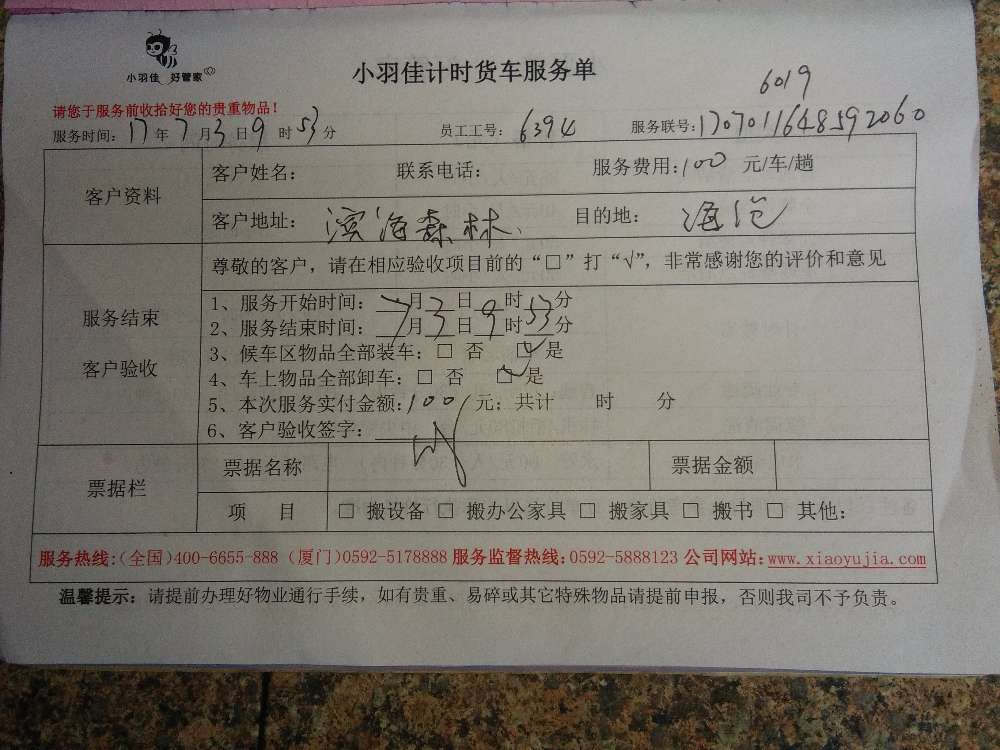 小羽佳 好管家
小羽佳计时货车服务单
6019
请您于服务前收拾好您的贵重物品！
服务时间：17年7月3日9时53分 员工工号：6394 服务联号：1707011648592060
客户资料
客户姓名： 联系电话： 服务费用：100 元/车/趟
客户地址：滨海森林、 目的地：海沧
服务结束
客户验收
尊敬的客户，请在相应验收项目前的“□”打“√”，非常感谢您的评价和意见
1、服务开始时间：7月3日9时53分
2、服务结束时间：7月3日9时53分
3、候车区物品全部装车：□ 否 ☑是
4、车上物品全部卸车：□ 否 ☑是
5、本次服务实付金额：100 元；共计 时 分
6、客户验收签字：
票据栏
票据名称 票据金额
项 目 □ 搬设备 □ 搬办公家具 □ 搬家具 □ 搬书 □ 其他：
服务热线：(全国)400-6655-888 (厦门)0592-5178888 服务监督热线：0592-5888123 公司网站：www.xiaoyujia.com
温馨提示：请提前办理好物业通行手续，如有贵重、易碎或其它特殊物品请提前申报，否则我司不予负责。